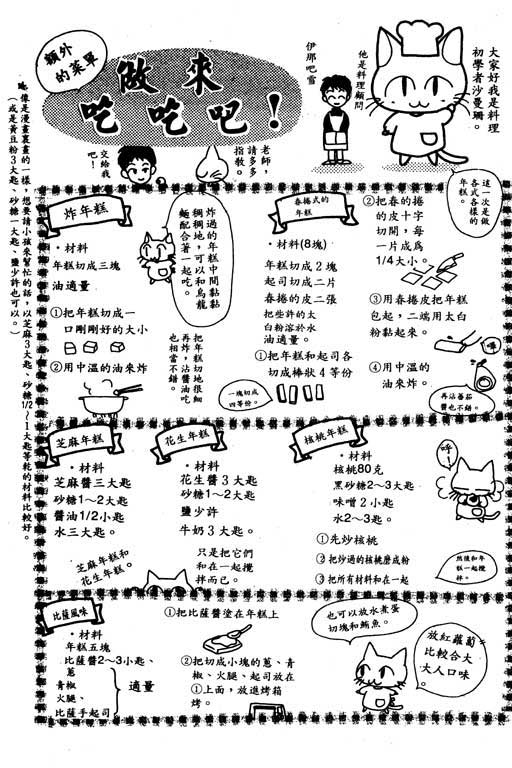 額外
的菜單
做來
吃吃吧！
大家好我是料理
初學者沙曼珊。
他是料理顧問
伊那吧雪
老師，
請多多
指教。
交給我
吧！
這一次是做
各式各樣的
年糕。
炸年糕
・材料
年糕切成三塊
油適量
①把年糕切成一
口剛剛好的大小
②用中溫的油來炸
炸過的年糕中間黏黏
稠稠地，可以和烏龍
麵配合著一起吃。
把年糕切地很細
再炸，沾醬油吃
也相當不錯。
春捲式的
年糕
・材料(8塊)
年糕切成2塊
起司切成二片
春捲的皮二張
把些許的太
白粉溶於水
油適量。
①把年糕和起司各
切成棒狀4等份
一塊切成
四等份。
②把春的捲
的皮十字
切開，每
一片成為
1/4大小。
③用春捲皮把年糕
包起，二端用太白
粉黏起來。
④用中溫的
油來炸。
再沾蕃茄
醬也不錯。
芝麻年糕
・材料
芝麻醬三大匙
砂糖1～2大匙
醬油1/2小匙
水三大匙。
花生年糕
・材料
花生醬3大匙
砂糖1～2大匙
鹽少許
牛奶3大匙。
芝麻年糕和
花生年糕。
只是把它們
和在一起攪
拌而已。
核桃年糕
・材料
核桃80克
黑砂糖2～3大匙
味噌2小匙
水2～3匙。
①先炒核桃
②把炒過的核桃磨成粉
③把所有材料和在一起
呼！
然後和年
糕一起攪
拌。
比薩風味
・材料
年糕五塊
比薩醬2～3小匙、
蔥
青椒
火腿、
比薩手起司
適量
①把比薩醬塗在年糕上
②把切成小塊的蔥、青
椒、火腿、起司放在
①上面，放進烤箱
烤。
也可以放水煮蛋
切塊和鮪魚。
放紅蘿蔔
比較合大
大人口味
。
像是漫畫裏畫的一樣，想要請小孩來幫忙的話，以芝麻3大匙、砂糖1/2～1大匙等乾的材料比較好。
（或是黃豆粉3大匙、砂糖一大匙、鹽少許也可以。）